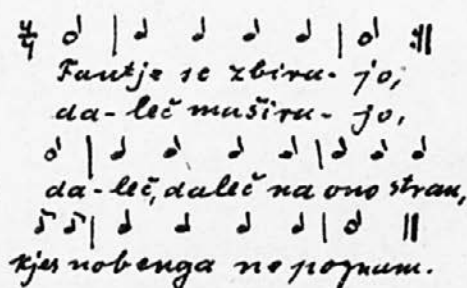 4/4
Fantje se zbira- jo,
da-leč mašira- jo,
da-leč, daleč na ono stran,
kjer nobenga ne poznam.